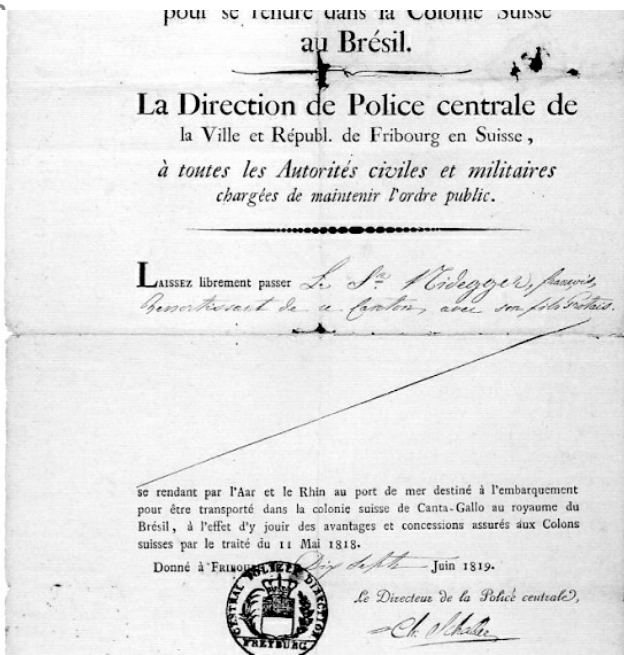 pour se rendre dans la Colonie Suisse
au Brésil.
La Direction de Police centrale de
la Ville et Républ. de Fribourg en Suisse,
à toutes les Autorités civiles et militaires
chargées de maintenir l'ordre public.
LAISSEZ librement passer Le Sr. Nidegger, françois,
Ressortissant de ce Canton, avec son fils Protais.
se rendant par l'Aar et le Rhin au port de mer destiné à l'embarquement
pour être transporté dans la colonie suisse de Canta-Gallo au royaume du
Brésil, à l'effet d'y jouir des avantages et concessions assurés aux Colons
suisses par le traité du 11 Mai 1818.
Donné à FRIBOU Dix Sept Juin 1819.
CENTRAL POLIZEY DIRECTION
FREYBURG
Le Directeur de la Police centrale,
Ch. Schaller